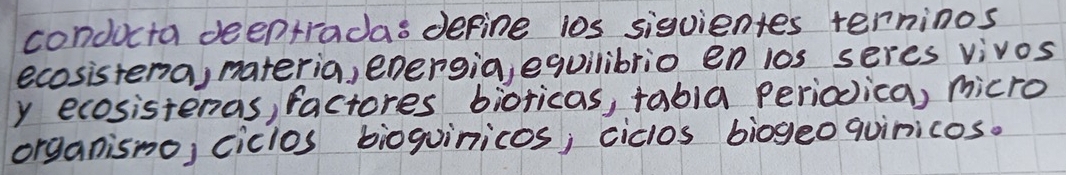 conducta deentrada: define los siguientes terminos
ecosistema, materia, energia, equilibrio en los seres vivos
y ecosistemas, factores bioticas, tabla Periodica, micro
organismo, ciclos bioquimicos, ciclos biogeoquimicos.